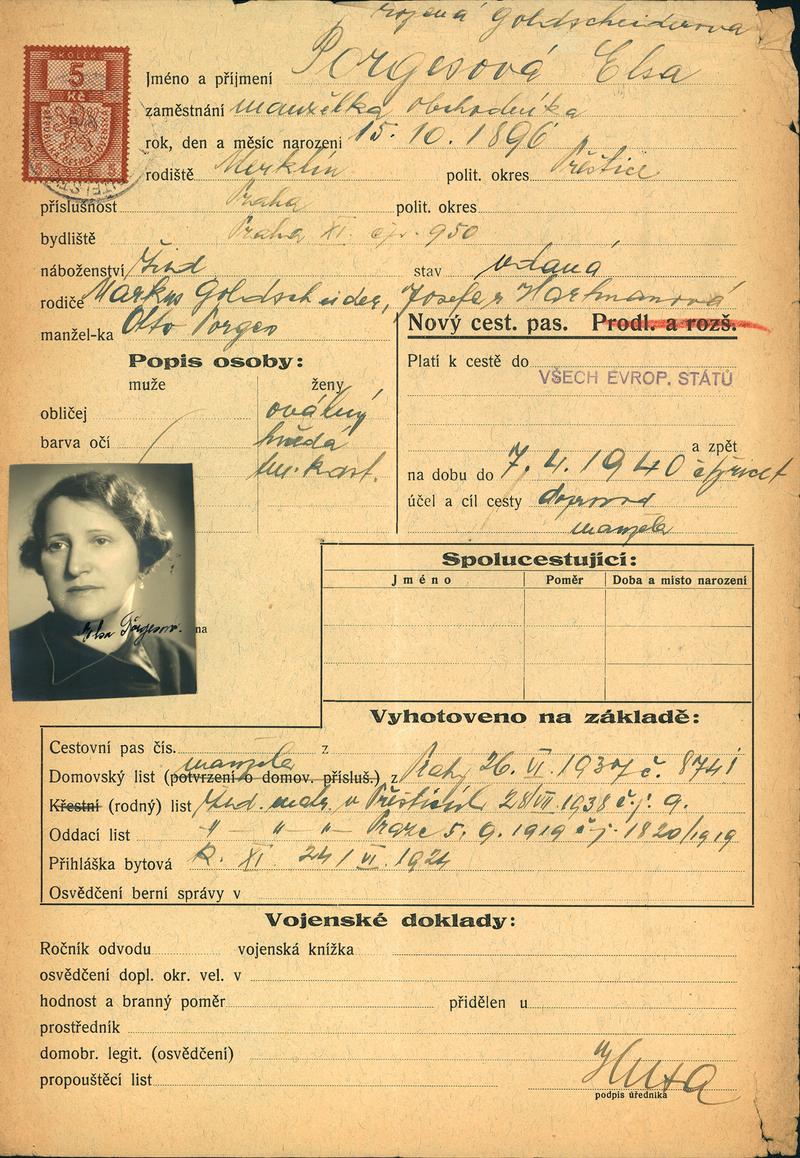 rozená Goldscheiderova
KOLEK
5
Kč
Jméno a příjmení Porgesová Elsa
zaměstnání manželka obchodníka
rok, den a měsíc narození 15. 10. 1896
rodiště Merklín polit. okres Přeštice
příslušnost Praha polit. okres
bydliště Praha XI. čp. 950
náboženství žid stav vdaná
rodiče Markus Goldscheider, Josefa r Hartmanová
manžel-ka Otto Porges
Nový cest. pas. Prodl. a rozš.
Popis osoby:
Platí k cestě do VŠECH EVROP. STÁTŮ
muže ženy
obličej oválný
barva očí hnědá
tm. kašt.
a zpět
na dobu do 7. 4. 1940 čtyřicet
účel a cíl cesty doprovod
manžela
Elsa Porgesová
na
Spolucestující:
Jméno Poměr Doba a místo narození
Vyhotoveno na základě:
Cestovní pas čís. z
manžela
Domovský list (potvrzení o domov. přísluš.) z Prahy 26. VI. 1937 č. 8741
Křestní (rodný) list žid. matr. v Přešticích 28/VII. 1938 č.j. 9.
Oddací list " — " — " — Praze 5. 9. 1919 č.j. 1820/1919
Přihláška bytová k. XI 24/VI. 1924
Osvědčení berní správy v
Vojenské doklady:
Ročník odvodu vojenská knížka
osvědčení dopl. okr. vel. v
hodnost a branný poměr přidělen u
prostředník
domobr. legit. (osvědčení)
propouštěcí list
podpis úředníka